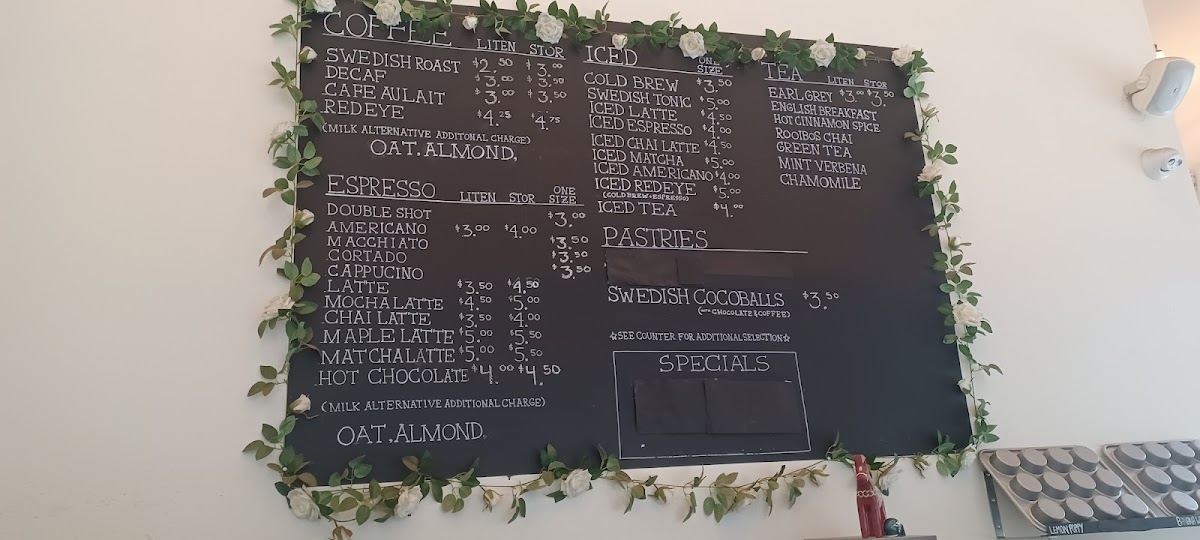 COFFEE LITEN STOR
SWEDISH ROAST $2.50 $3.00
DECAF $3.00 $3.50
CAFE AU LAIT $3.00 $3.50
REDEYE $4.25 $4.75
(MILK ALTERNATIVE ADDITONAL CHARGE)
OAT. ALMOND.
ESPRESSO LITEN STOR ONE SIZE
DOUBLE SHOT $3.00
AMERICANO $3.00 $4.00
MACCHIATO $3.50
CORTADO $3.50
CAPPUCINO $3.50
LATTE $3.50 $4.50
MOCHA LATTE $4.50 $5.00
CHAI LATTE $3.50 $4.00
MAPLE LATTE $5.00 $5.50
MATCHA LATTE $5.00 $5.50
HOT CHOCOLATE $4.00 $4.50
(MILK ALTERNATIVE ADDITIONAL CHARGE)
OAT. ALMOND.
ICED ONE SIZE
COLD BREW $3.50
SWEDISH TONIC $5.00
ICED LATTE $4.50
ICED ESPRESSO $4.00
ICED CHAI LATTE $4.50
ICED MATCHA $5.00
ICED AMERICANO $4.00
ICED REDEYE $5.00
(COLD BREW + ESPRESSO)
ICED TEA $4.00
PASTRIES
SWEDISH COCOBALLS $3.50
(WITH CHOCOLATE & COFFEE)
☆SEE COUNTER FOR ADDITIONAL SELECTION☆
SPECIALS
TEA LITEN STOR
EARL GREY $3.00 $3.50
ENGLISH BREAKFAST
HOT CINNAMON SPICE
ROOIBOS CHAI
GREEN TEA
MINT VERBENA
CHAMOMILE
LEMON POPPY